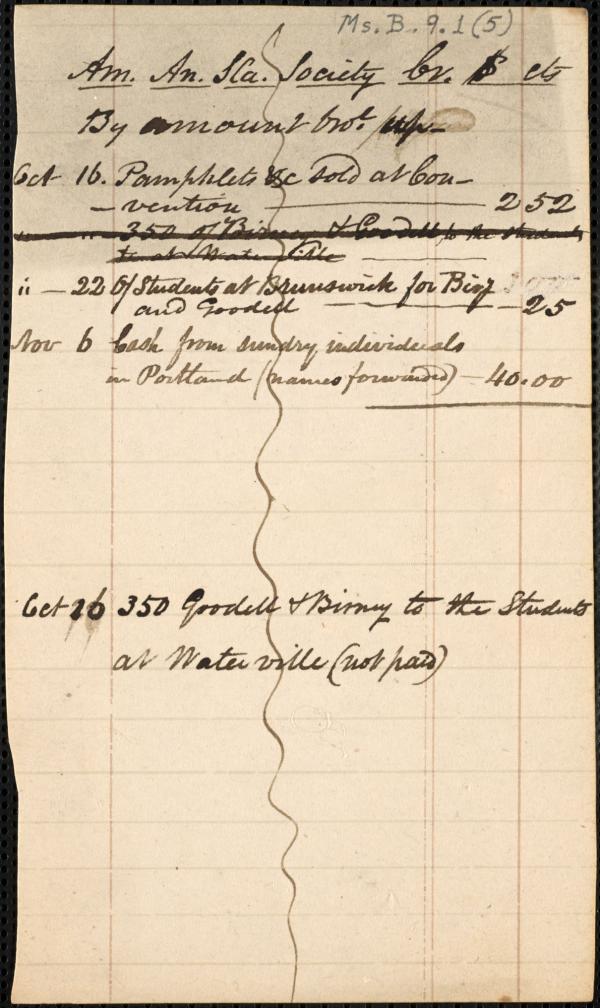 Ms. B. 9. 1 (5)
Am. An. Sla. Society Cr. $ cts
By amount bro.t up—
Oct 16. Pamphlets &c sold at Con-
-vention 2 52
" " 350 of Birney & Goodell to the Students
at Waterville
" — 22 of Students at Brunswick for
and Goodell — 25
Nov 6 Cash from sundry individuals
in Portland (names forwarded) — 40.00
Oct 16 350 Goodell & Birney to the Students
at Waterville (not paid)